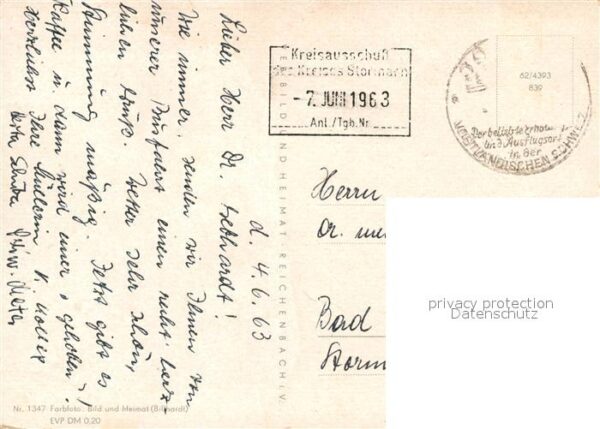 d. 4.6.63
Lieber Herr Dr. Gebhardt!
Wie immer, senden wir Ihnen von
unserer Ausfahrt einen recht herz-
lichen Gruß. Wetter sehr schön,
Stimmung mäßig. Jetzt gibt es
Kaffee u. dann wird einer "gehoben"!
Herzlichst Ihre
Kreisausschuß
des Kreises Stormarn
- 7. JUNI 1963
Anl./Tgb.Nr.
62/4393
839
Der beliebte Erholungs-
und Ausflugsort
in der
VOGTLÄNDISCHEN SCHWEIZ
Herrn
Dr. med
Bad
Storm
privacy protection
Datenschutz
BILD UND HEIMAT · REICHENBACH I. V.
Nr. 1347 Farbfoto: Bild und Heimat (Billhardt)
EVP DM 0,20